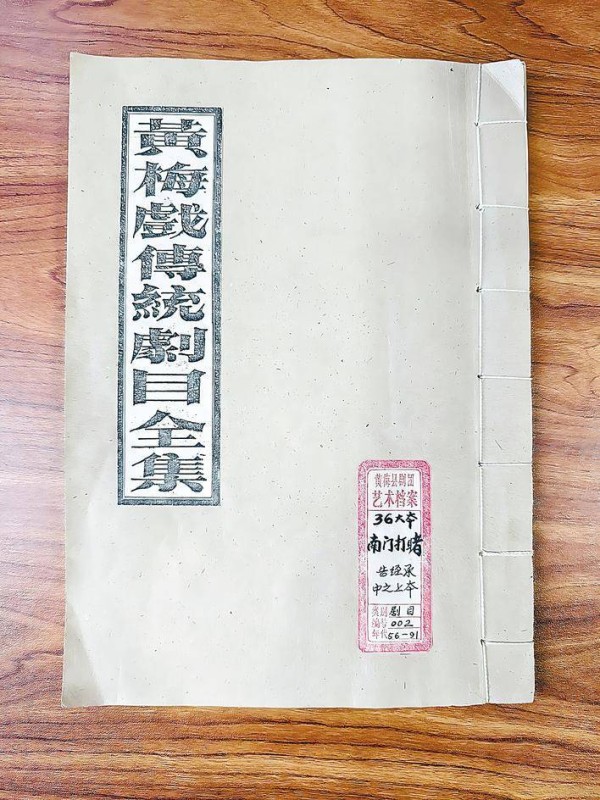 黄梅戲傳統劇目全集
黄梅县剧团
艺术档案
36大本
南门打赌
告经承
中之上本
类别 剧目
编号 002
年代 56-91